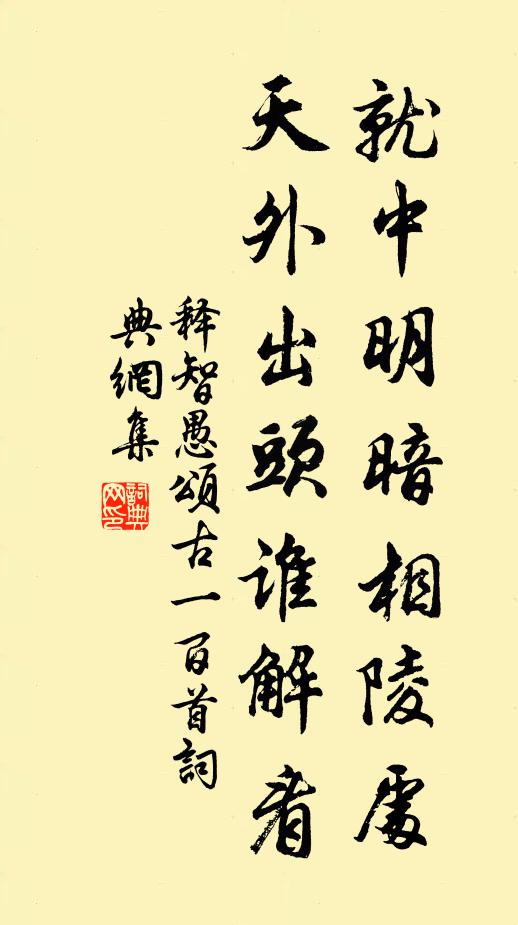 就中明暗相陵處
天外出頭谁解看
释智愚頌古一百首詞
典網集
詞典
网印